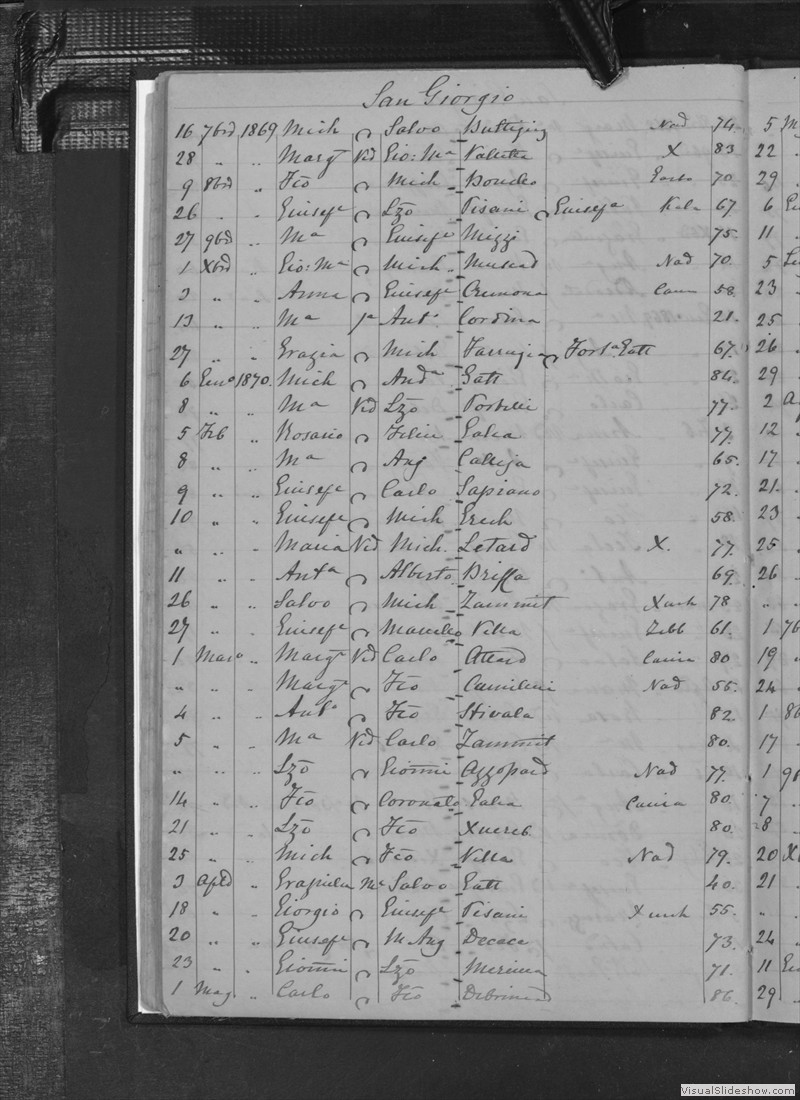 San Giorgio
16 7bre 1869 Mich Salvo Buttigieg Nad 74 5
28 " " Marg Vid Gio: Ma Valletta X 83 22
9 8bre " Fco Mich 70 29
26 " " Giusepe Lzo Pisani Giusepa Kala 67 6
27 9bre " Ma Giusepe Mizzi 75. 11
1 Xbre " Gio: Ma Mich Muscad Nad 70. 5
3 " " Anna Giusepe Cremona 58. 23
13 " " Ma Anto Cordina 21. 25
27 " " Grazia Mich Farrugia Fort Gatt 67. 26
6 Geno 1870. Mich Anda Gatt 84. 29
8 " " Ma Vid Lzo Portelli 77. 2
5 Feb " Rosario Felice Galea 77. 12
8 " " Ma Ang Calleja 65. 17
9 " " Giusepe Carlo Sapiano 72. 21.
10 " " Giusepe Mich Grech 58. 23
" " " Maria Vid Mich. Letard X. 77. 25
11 " " Anta Alberto Briffa 69. 26
26 " " Salvo Mich Zammit Xeuk 78 "
27 " " Giusepe Vella Zebb 61. 1
1 Marzo " Marg Vid Carlo Attard 80 19
" " " Marg Fco Camilleri Nad 55. 24
4 " " Anto Fco Stivala 82. 1
5 " " Ma Vid Carlo Zammit 80. 17
" " " Lzo Gionni Azzopard Nad 77. 1
14 " " Fco Coronato Galea 80. 7
21 " " Lzo Fco Xuereb 80. 8
25 " " Mich Fco Vella Nad 79. 20
3 Aple " Graziulla Salvo Gatt 40. 21
18 " " Giorgio Giusepe Pisani Xeuk 55. "
20 " " Giusepe M. Ang 73. 24
23 " " Gionni Lzo 71. 11
1 Mag " Carlo Fco 86. 29
VisualSlideshow.com